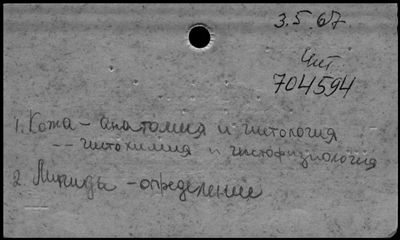 3.5.67.
Чит.
704594
1. Кожа - анатомия и гистология
-- гистохимия и гистофизиология
2. Липиды - определение